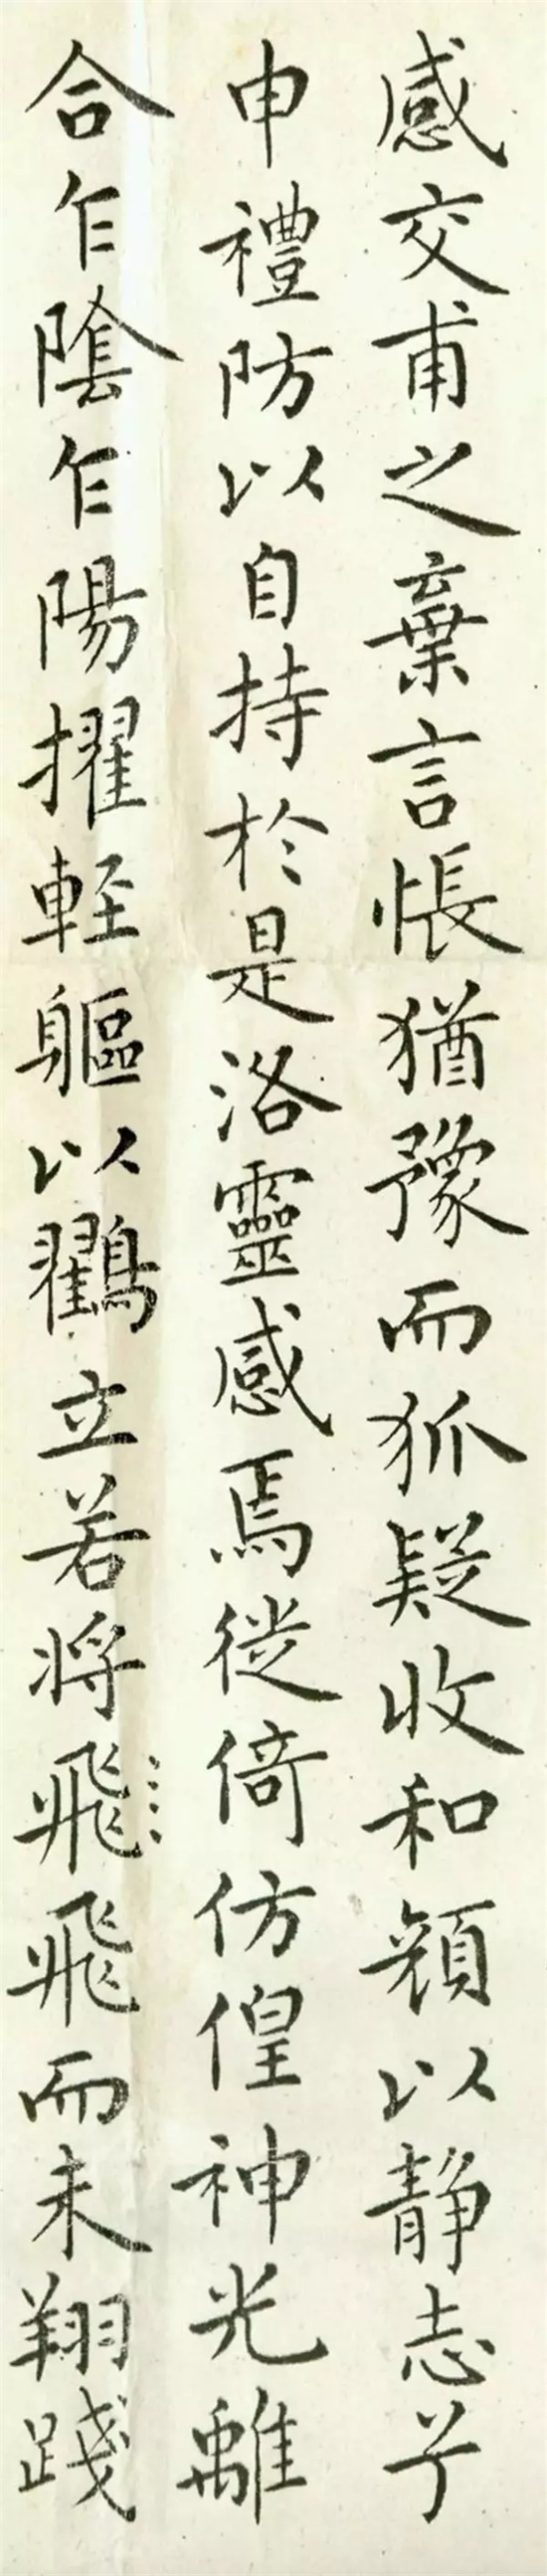 感交甫之棄言悵猶豫而狐疑收和顏以静志兮
申禮防以自持於是洛靈感焉徙倚仿偟神光離
合乍陰乍陽擢軽軀以鸖立若将飛飛而未翔踐